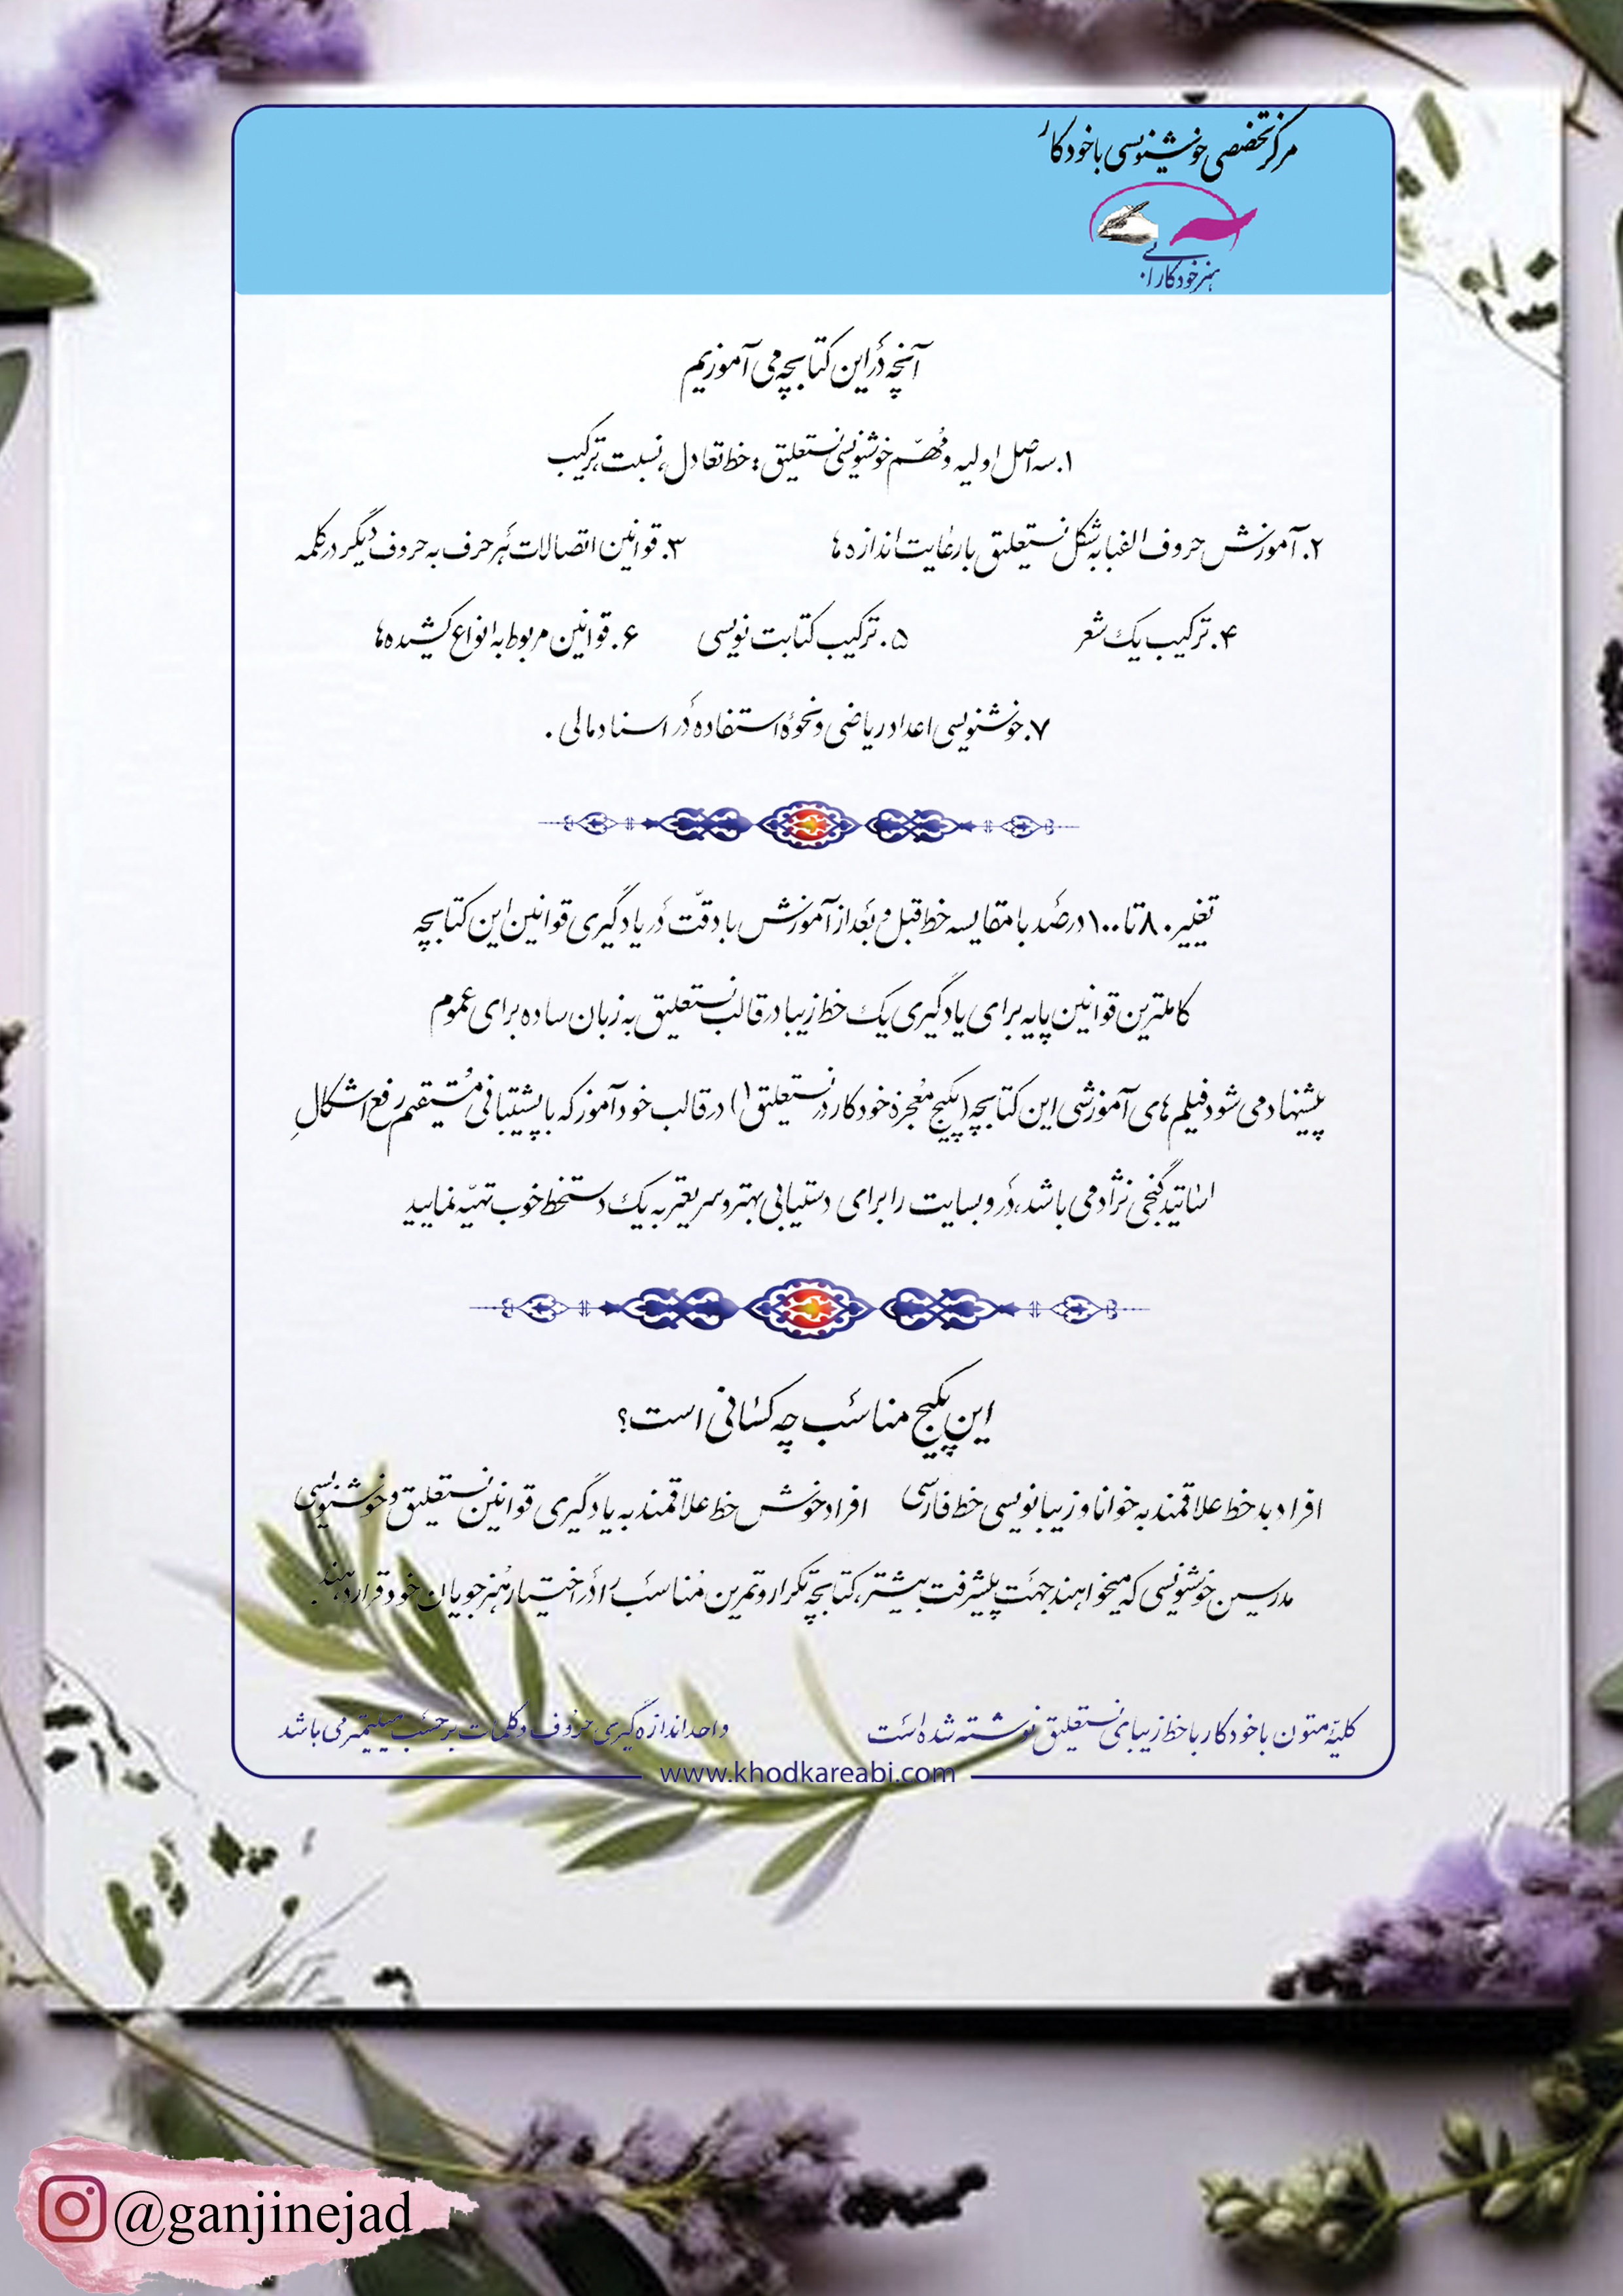 مرکز تخصصی خوشنویسی با خودکار
هنر خودکار آبی
آنچه در این کتابچه می آموزیم
۱. سه اصل اولیه و مهم خوشنویسی نستعلیق : خط تعادل، نسبت، ترکیب
۲. آموزش حروف الفبا به شکل نستعلیق با رعایت اندازه ها ۳. قوانین اتصالات هر حرف به حروف دیگر در کلمه
۴. ترکیب یک شعر ۵. ترکیب کتابت نویسی ۶. قوانین مربوط به انواع کشیده ها
۷. خوشنویسی اعداد ریاضی و نحوهٔ استفاده در اسناد مالی .
تغییر ۸۰ تا ۱۰۰ درصد با مقایسه خط قبل و بعد از آموزش با دقّت در یادگیری قوانین این کتابچه
کاملترین قوانین پایه برای یادگیری یک خط زیبا در قالب نستعلیق به زبان ساده برای عموم
پیشنهاد می شود فیلم های آموزشی این کتابچه (پکیج معجزه خودکار در نستعلیق ۱) در قالب خودآموز که با پشتیبانی مستقیم رفع اشکالِ
اساتید گنجی نژاد می باشد، در وبسایت را برای دستیابی بهتر و سریعتر به یک دستخط خوب تهیّه نمایید
این پکیج مناسب چه کسانی است؟
افراد بد خط علاقمند به خوانا و زیبا نویسی خط فارسی افراد خوش خط علاقمند به یادگیری قوانین نستعلیق و خوشنویسی
مدرسین خوشنویسی که میخواهند جهت پیشرفت بیشتر، کتابچه تکرار و تمرین مناسب را در اختیار هنرجویان خود قرار دهند
کلیّه متون با خودکار با خط زیبای نستعلیق نوشته شده است واحد اندازه گیری حروف و کلمات برحسب میلیمتر می باشد
www.khodkareabi.com
@ganjinejad